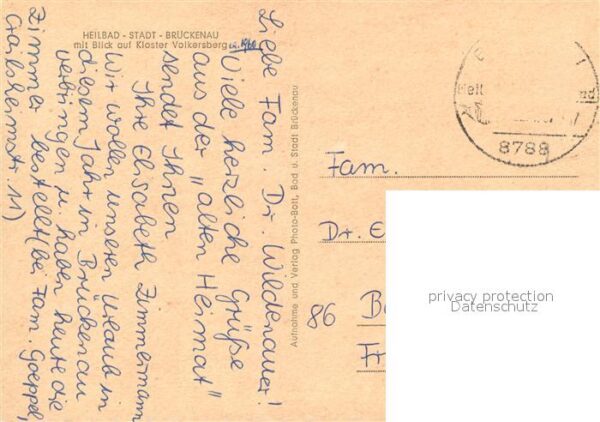 HEILBAD - STADT - BRÜCKENAU
mit Blick auf Kloster Volkersberg
Liebe Fam. Dr. Wildenauer!
Viele herzliche Grüße
aus der „alten Heimat"
sendet Ihnen
Ihre Elisabeth Zimmermann
Wir wollen unseren Urlaub in
diesem Jahr in Brückenau
verbringen u. haben heute die
Zimmer bestellt (bei Fam. Goeppel,
Sailsheimstr. 11)
Aufnahme und Verlag Photo-Bott, Bad u. Stadt Brückenau
8788
Fam.
Dr. E
86 Ba
privacy protection
Datenschutz